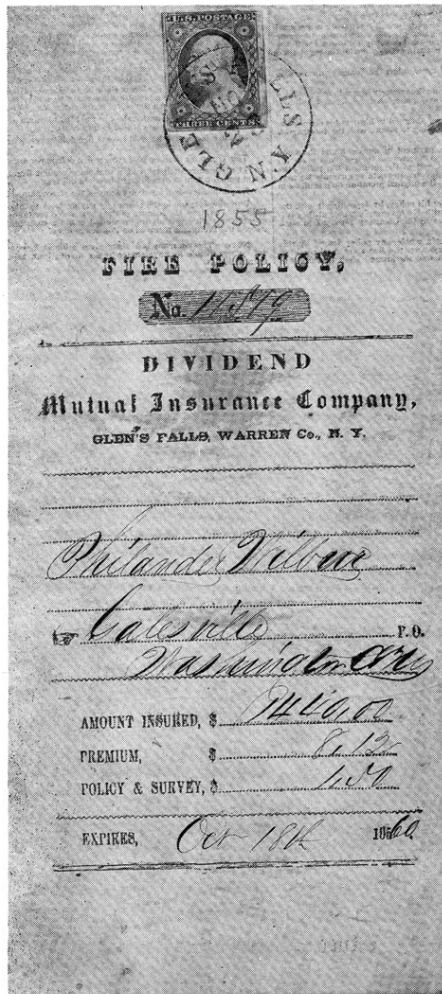 U.S. POSTAGE
THREE CENTS
GLENS FALLS N.Y
1855
FIRE POLICY,
No.
DIVIDEND
Mutual Insurance Company,
GLEN'S FALLS, WARREN Co., N. Y.
Philander Wilbur
☞ Galesville P.O.
Washington
AMOUNT INSURED, $
PREMIUM, $ 8.12
POLICY & SURVEY, $ 1.50
EXPIRES, Oct 18th 1860